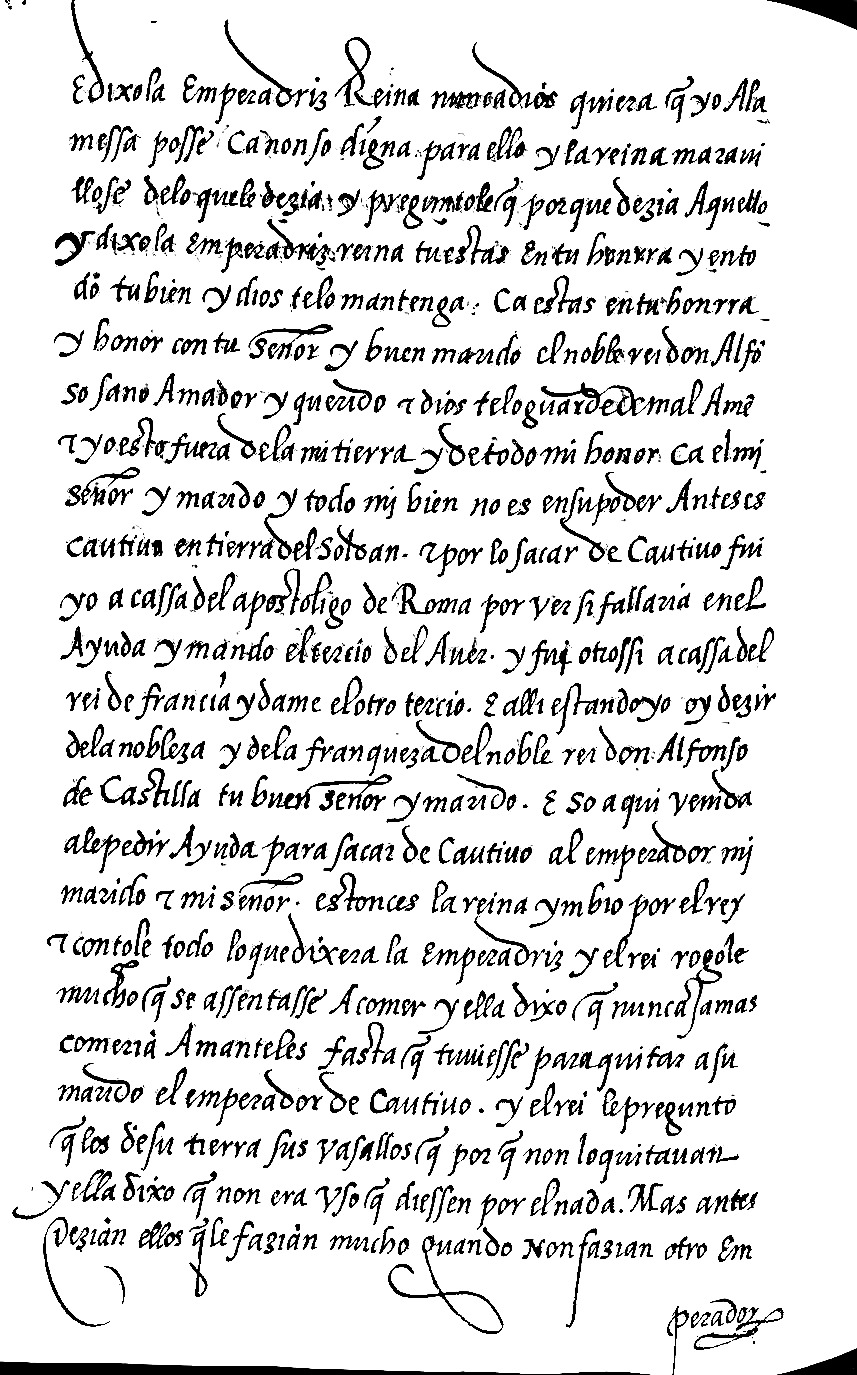 E dixo la Emperadriz Reina nunca dios quiera q̃ yo A la
messa posse Ca non so digna para ello y la reina maravi
llose de lo que le dezia y preguntole q̃ por que dezia Aquello
y dixo la Emperadriz reina tu estas En tu honrra y en to
dõ tu bien y dios te lo mantenga. Ca estas en tu honrra
y honor con tu señor y buen marido el noble rei don Alfõ
so sano Amador y querido τ dios te lo guarde de mal Amẽ
τ yo esto fuera de la mi tierra y de todo mi honor Ca el mi
señor y marido y todo mi bien no es en su poder Antes es
cautiuo en tierra del Soldan. τ por lo sacar de Cautiuo fui
yo a cassa del apostoligo de Roma por ver si fallaria en el
Ayuda y mando el tercio del Auer. y fui otrossi a cassa del
rei de francia y dame el otro tercio. E alli estando yo oy dezir
de la nobleza y de la franqueza del noble rei don Alfonso
de Castilla tu buen señor y marido. E so aqui venida
a le pedir Ayuda para sacar de Cautiuo al emperador mi
marido τ mi señor. estonces la reina ymbio por el rey
τ contole todo lo que dixera la Emperadriz y el rei rogole
mucho q̃ se assentasse A comer y ella dixo q̃ nunca jamas
comeria A manteles fasta q̃ tuuiesse para quitar a su
marido el emperador de Cautiuo. y el rei le pregunto
q̃ los de su tierra sus vasallos q̃ por q̃ non lo quitauan
y ella dixo q̃ non era vso q̃ diessen por el nada. Mas antes
Dezian ellos q̃ le fazian mucho quando Non fazian otro Em
perador